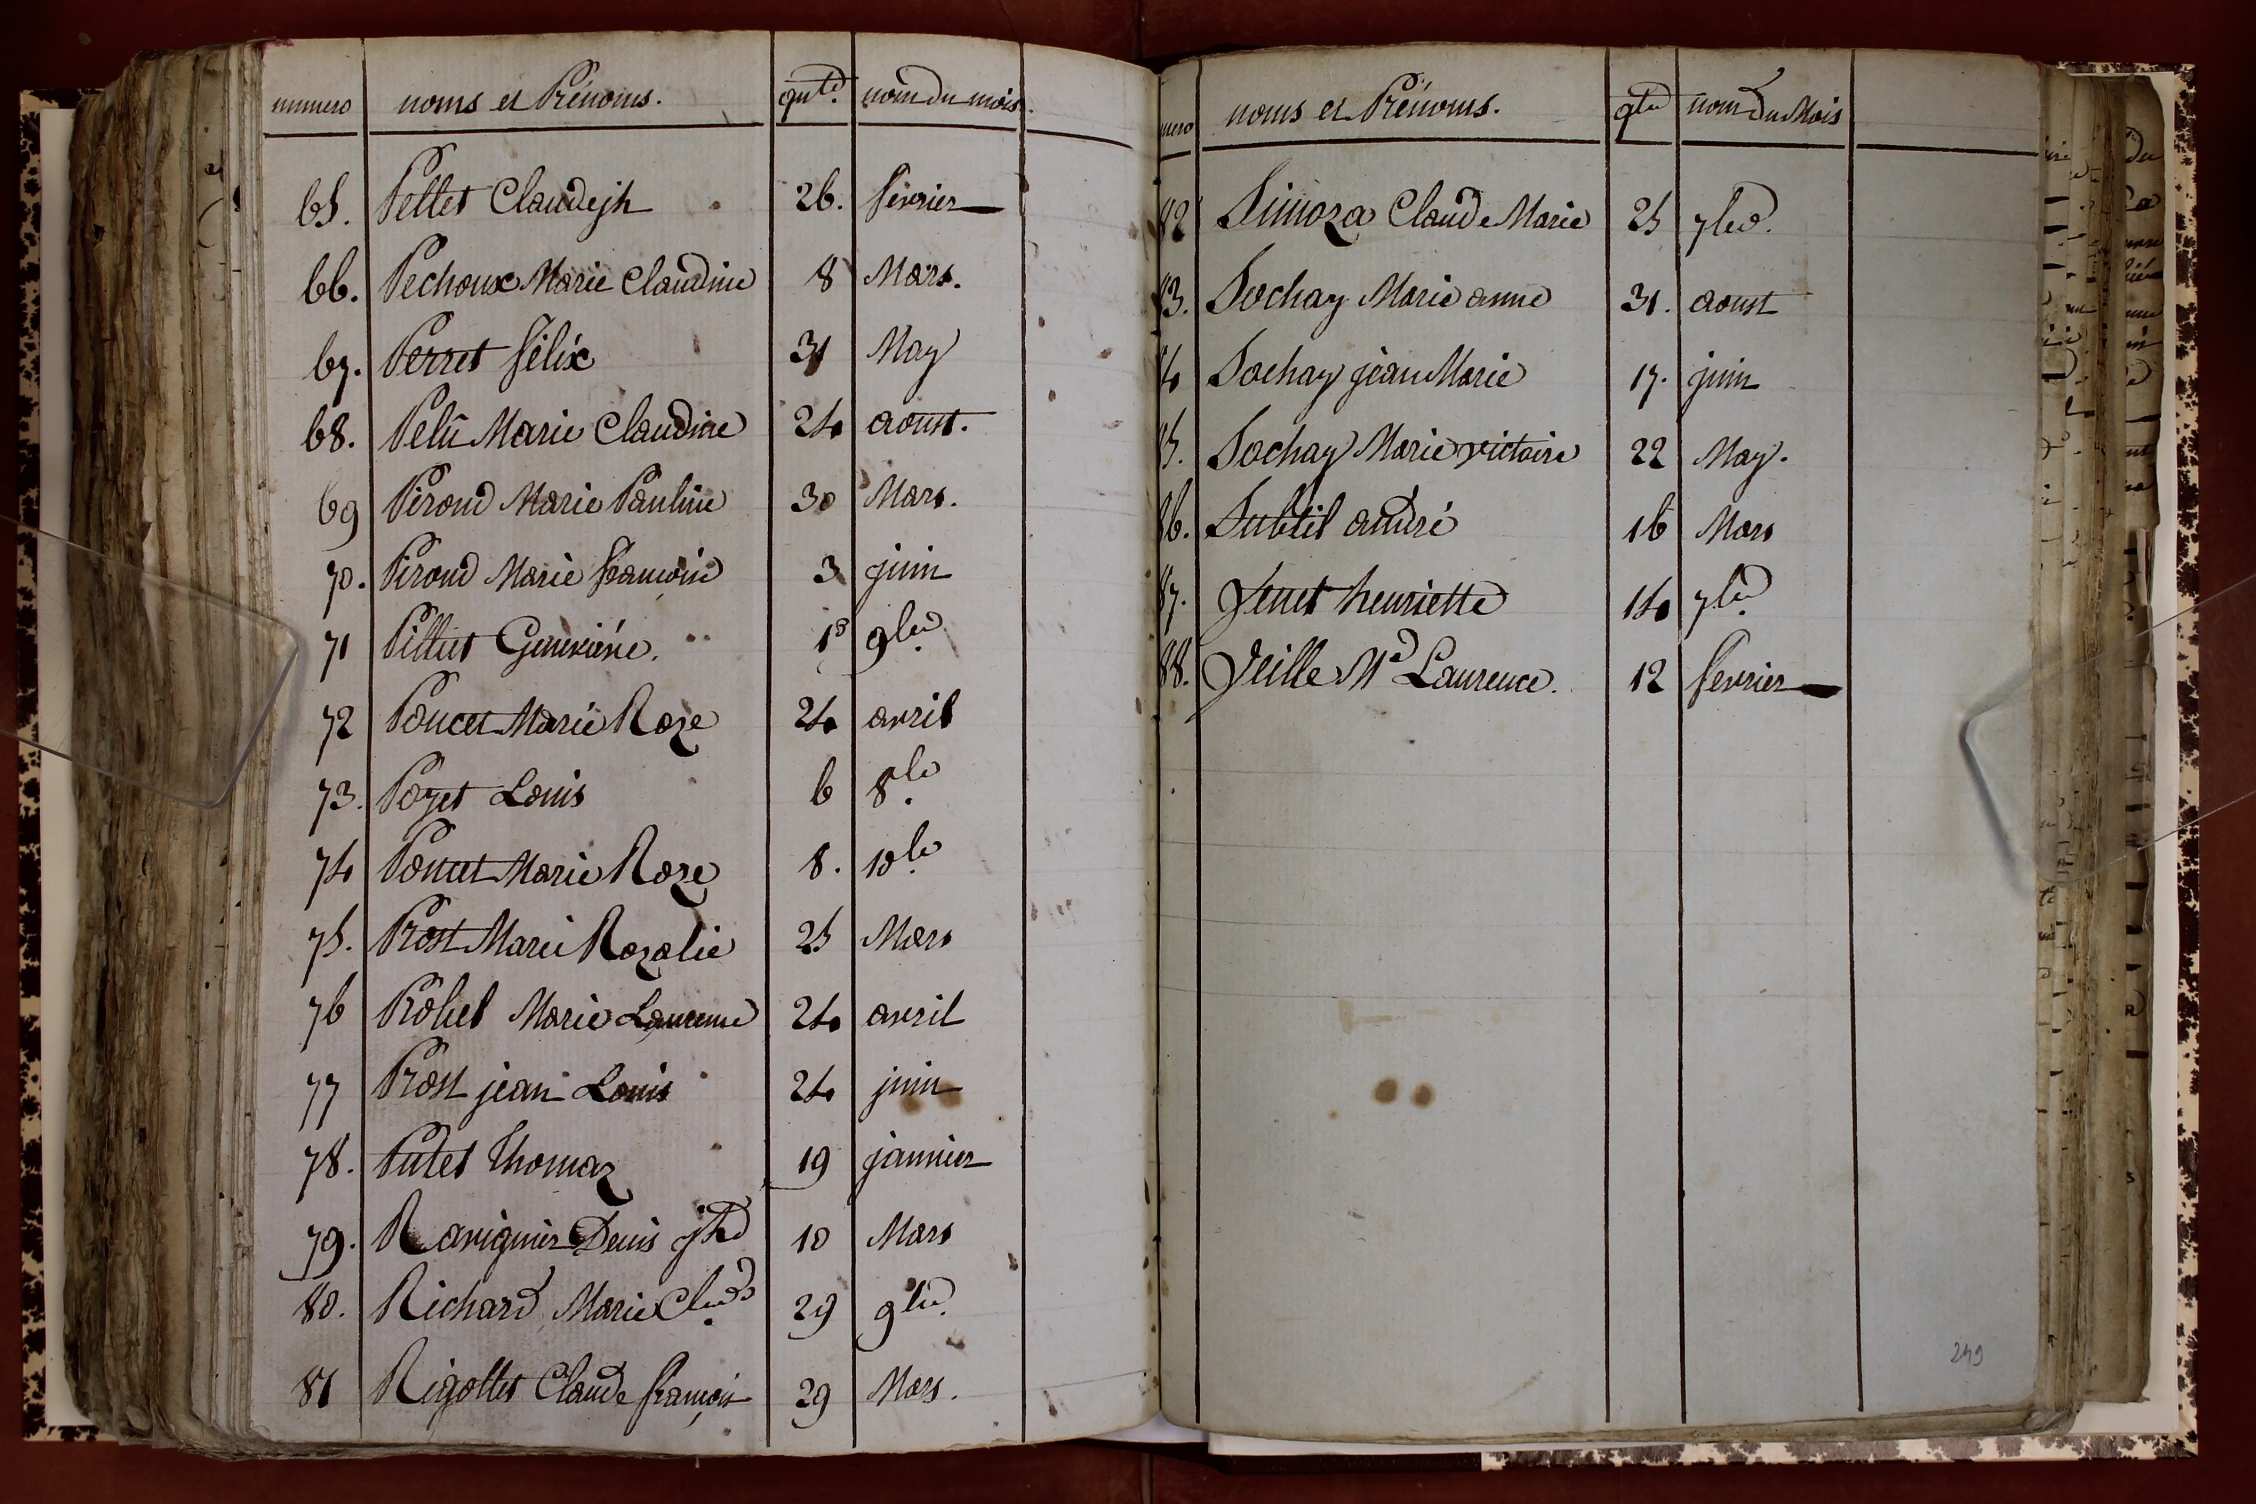 numero noms et Prénoms. qnte. nom du mois.
65. Pellet Claude jh 26. février
66. Pechoux Marie Claudine 8 Mars.
67. Perret félix 31 May
68. Pelü Marie Claudine 24 aoust.
69 Piroud Marie Pauline 30 Mars.
70. Piroud Marie françoise 3 juin
71 Pillut Genevieve. 18 9bre.
72 Poncet Marie Roze 24 avril
73. Poyet Louis 6 8bre.
74 Poncet Marie Roze 8. 10bre.
75. Prost Marie Rozalie 25 Mars
76 Prohel Marie Laurence 24 avril
77 Prost jean Louis 24 juin
78. Putet Thomaz 19 jannier
79. Ravignier Denis jh 10 Mars
80. Richard Marie Clde. 29 9bre.
81 Rigottet Claude françois 29 Mars.
mero noms et Prénoms. qte nom du Mois
82 Simoza Claude Marie 25 7bre.
83. Sochay Marie anne 31. aoust
84 Sochay jean Marie 17. juin
85. Sochay Marie victoire 22 May.
86. Subtil andré 16 Mars
87. Yenet henriette 14 7bre.
88. Veille Me Laurence. 12 fevrier
249